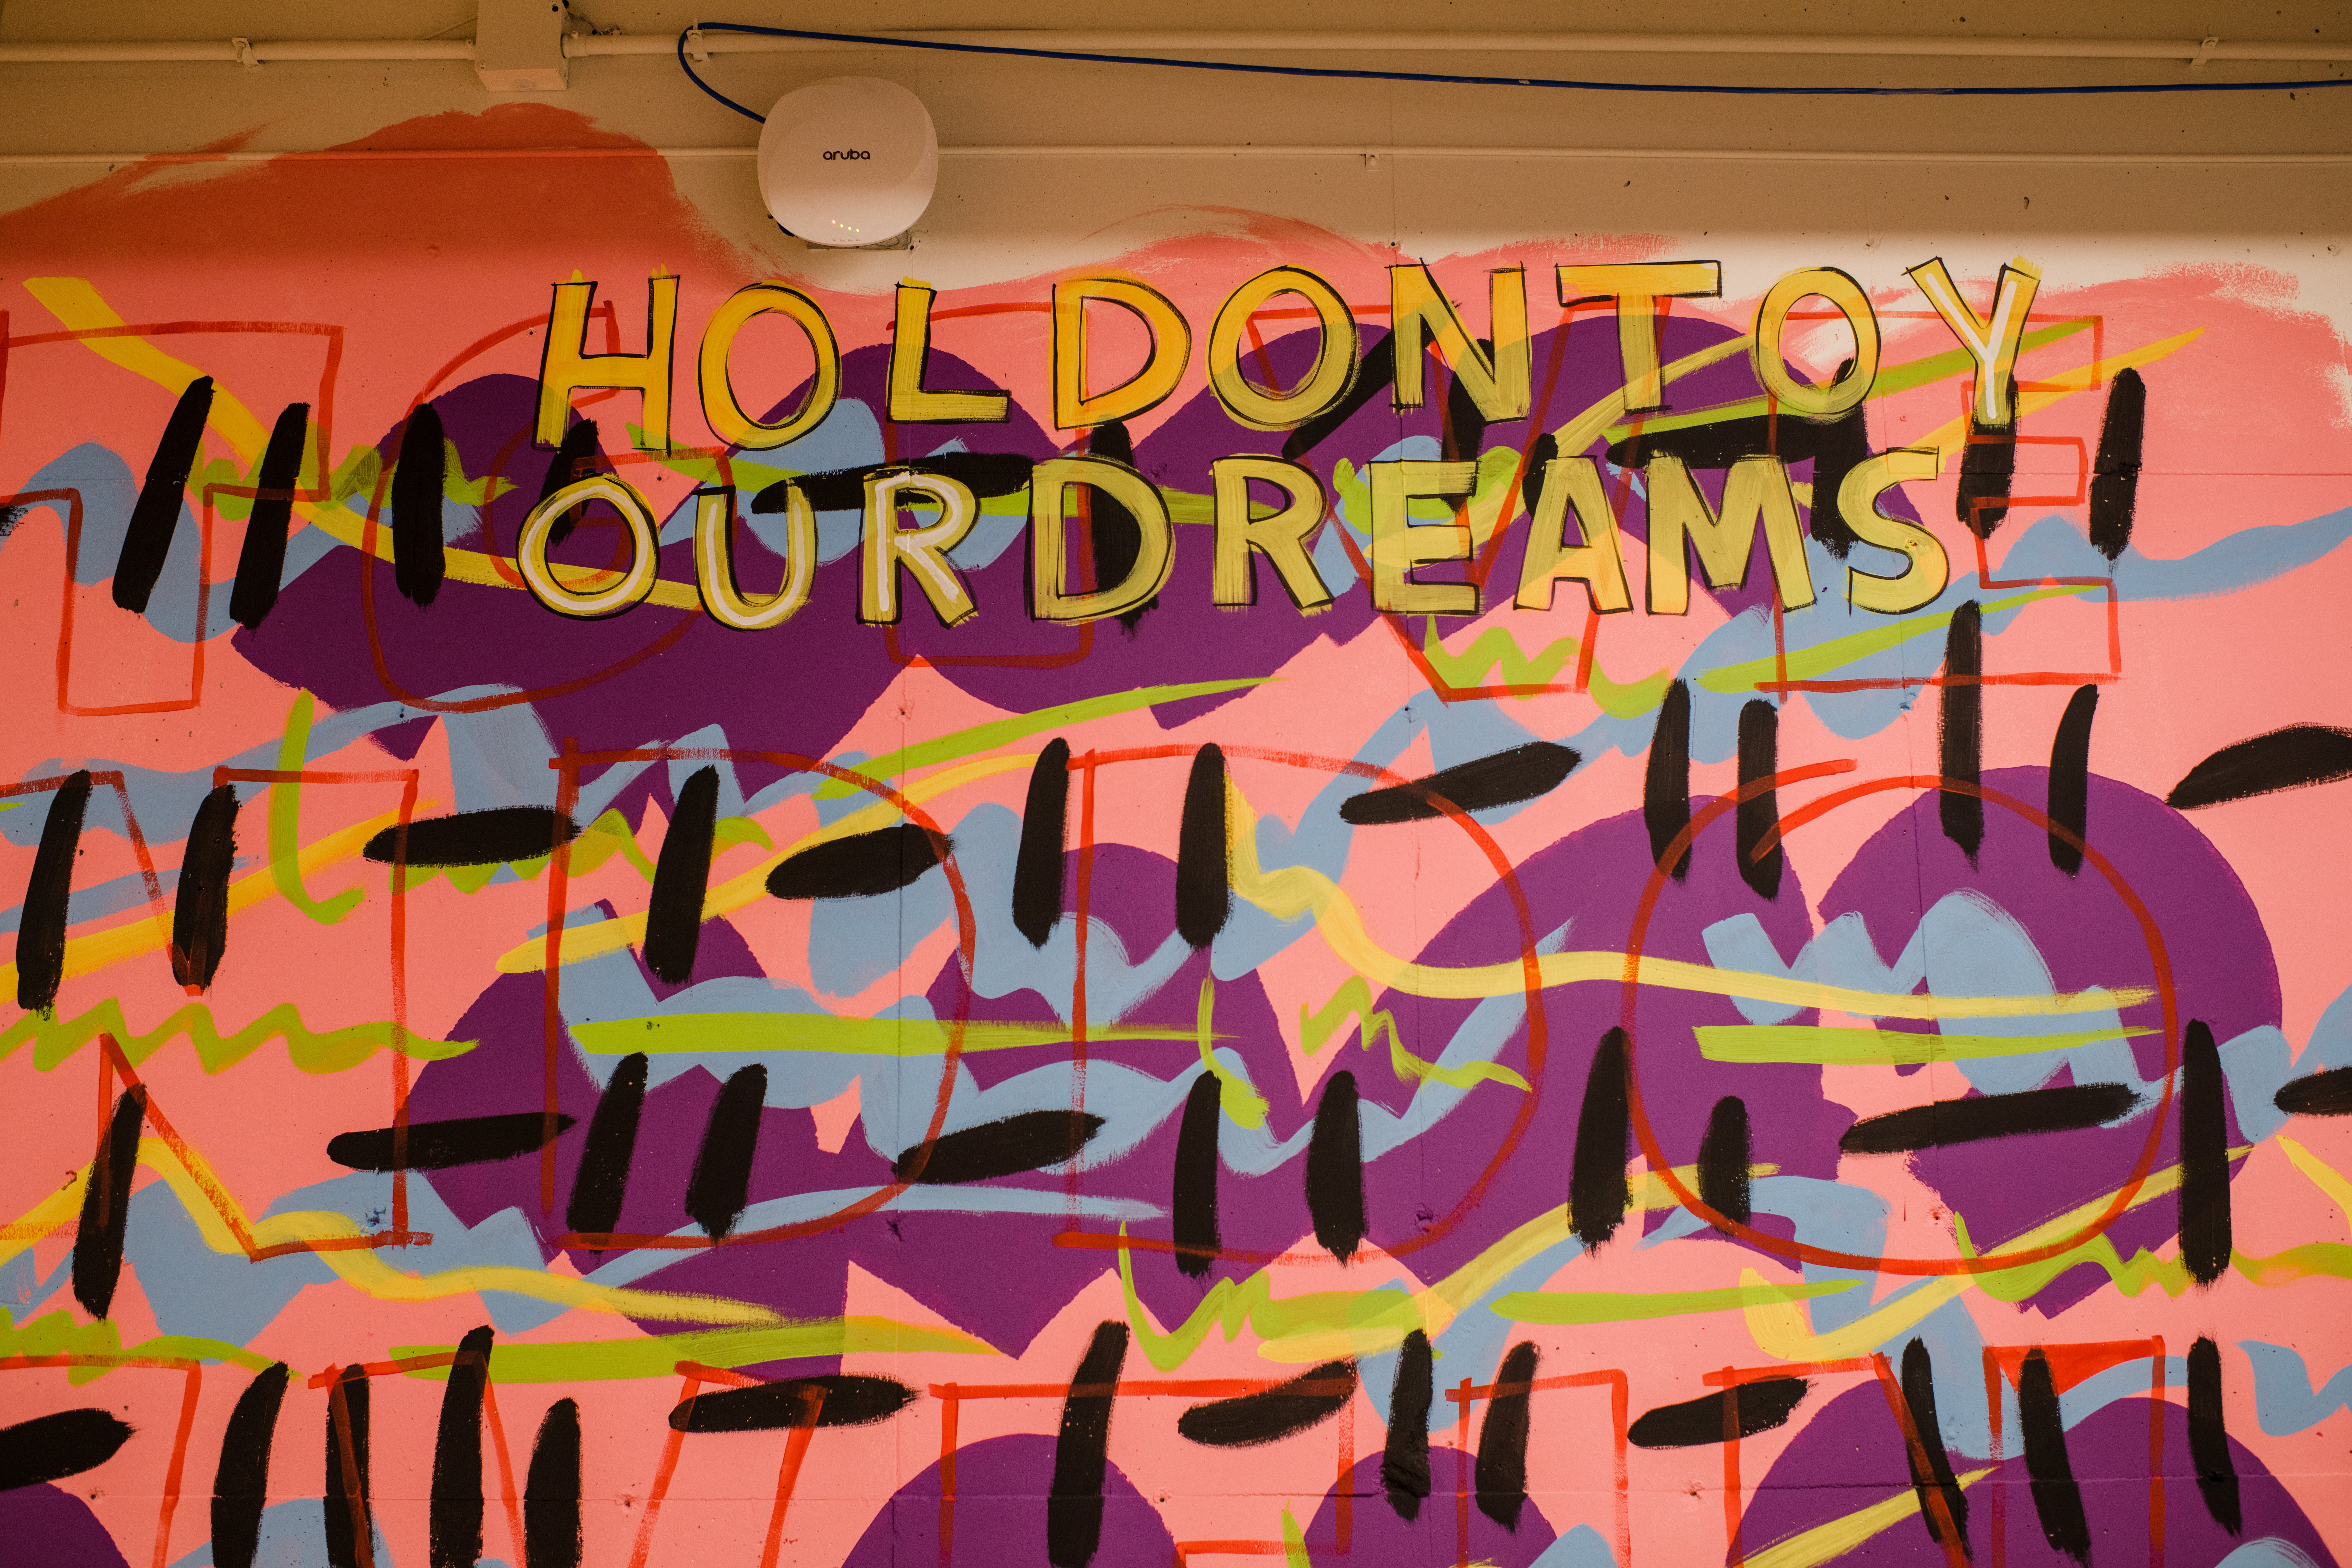 aruba
HOLDONTOY
OURDREAMS